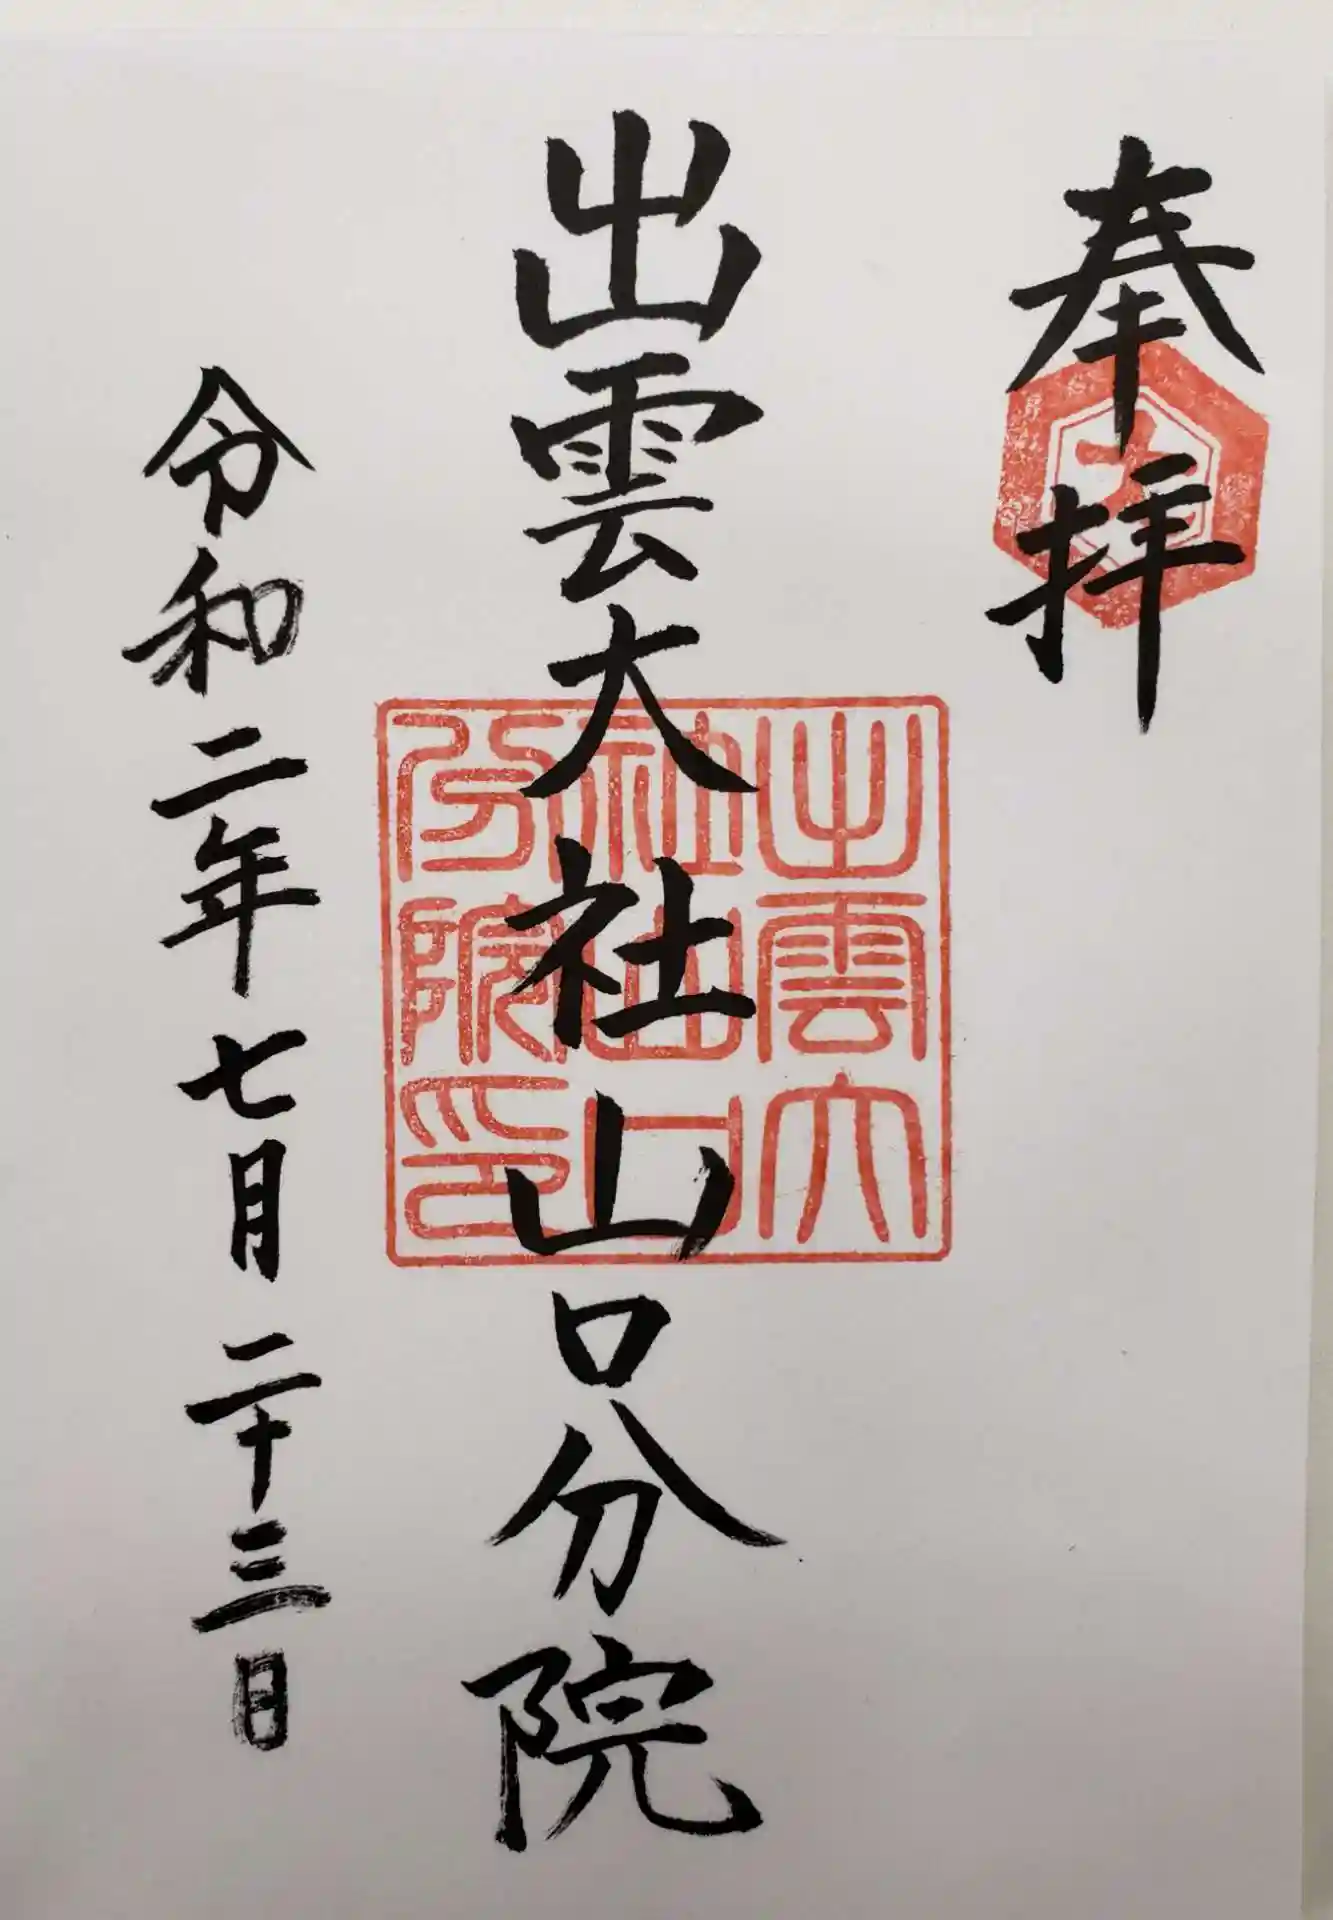 奉拝
大
出雲大社山口分院
出雲大
社山口
分院印
令和二年七月二十三日